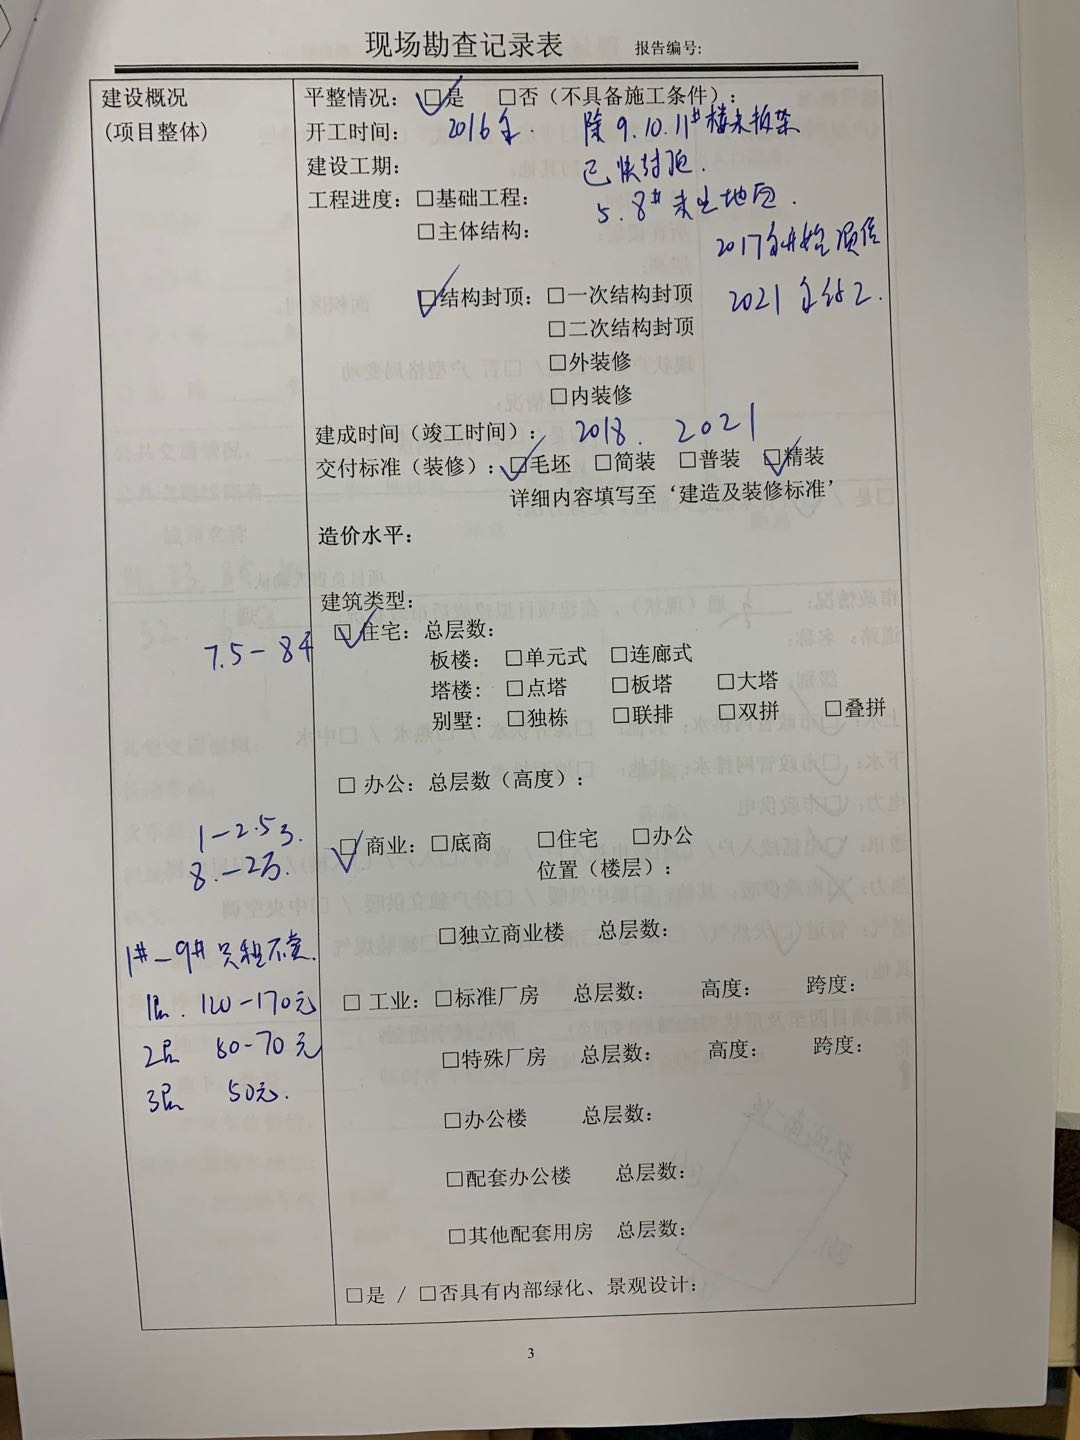 现场勘查记录表 报告编号:
建设概况
(项目整体)
平整情况: ☑是 □否(不具备施工条件):
开工时间: 2016年. 除9.10.11#楼未拆架
建设工期: 已快封顶.
工程进度: □基础工程: 5.8#未出地面.
□主体结构: 2017年开始预售
☑结构封顶: □一次结构封顶 2021年竣工.
□二次结构封顶
□外装修
□内装修
建成时间(竣工时间): 2018. 2021
交付标准(装修): ☑毛坯 □简装 □普装 ☑精装
详细内容填写至‘建造及装修标准’
造价水平:
建筑类型:
☑住宅: 总层数:
7.5-8千
板楼: □单元式 □连廊式
塔楼: □点塔 □板塔 □大塔
别墅: □独栋 □联排 □双拼 □叠拼
□ 办公: 总层数(高度):
1-2.53.
☑ 商业: □底商 □住宅 □办公
8.-2万.
位置(楼层):
□独立商业楼 总层数:
1#-9#只租不卖.
□ 工业: □标准厂房 总层数: 高度: 跨度:
1层. 120-170元
2层 60-70元
□特殊厂房 总层数: 高度: 跨度:
3层 50元.
□办公楼 总层数:
□配套办公楼 总层数:
□其他配套用房 总层数:
□是 / □否具有内部绿化、景观设计:
3